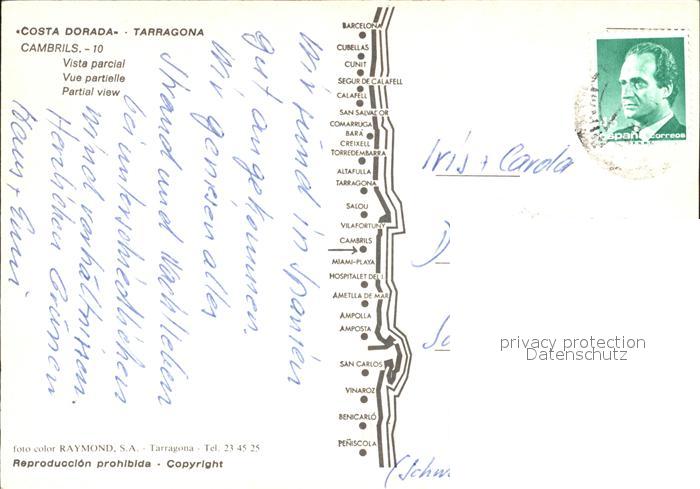 «COSTA DORADA» · TARRAGONA
CAMBRILS. - 10
Vista parcial
Vue partielle
Partial view
Wir sind in Spanien
gut angekommen.
Wir genießen alles
Strand und
bei unterschiedlichen
Windverhältnissen.
Herzlichen Grüssen
Klaus + Emmi
foto color RAYMOND, S.A. - Tarragona - Tel. 23 45 25
Reproducción prohibida - Copyright
BARCELONA
CUBELLAS
CUNIT
SEGUR DE CALAFELL
CALAFELL
SAN SALVADOR
COMARRUGA
BARÁ
CREIXELL
TORREDEMBARRA
ALTAFULLA
TARRAGONA
SALOU
VILAFORTUNY
CAMBRILS
MIAMI-PLAYA
HOSPITALET DEL I.
AMETLLA DE MAR
AMPOLLA
AMPOSTA
SAN CARLOS
VINAROZ
BENICARLÓ
PEÑISCOLA
España correos
Iris + Carola
privacy protection
Datenschutz
(Schw